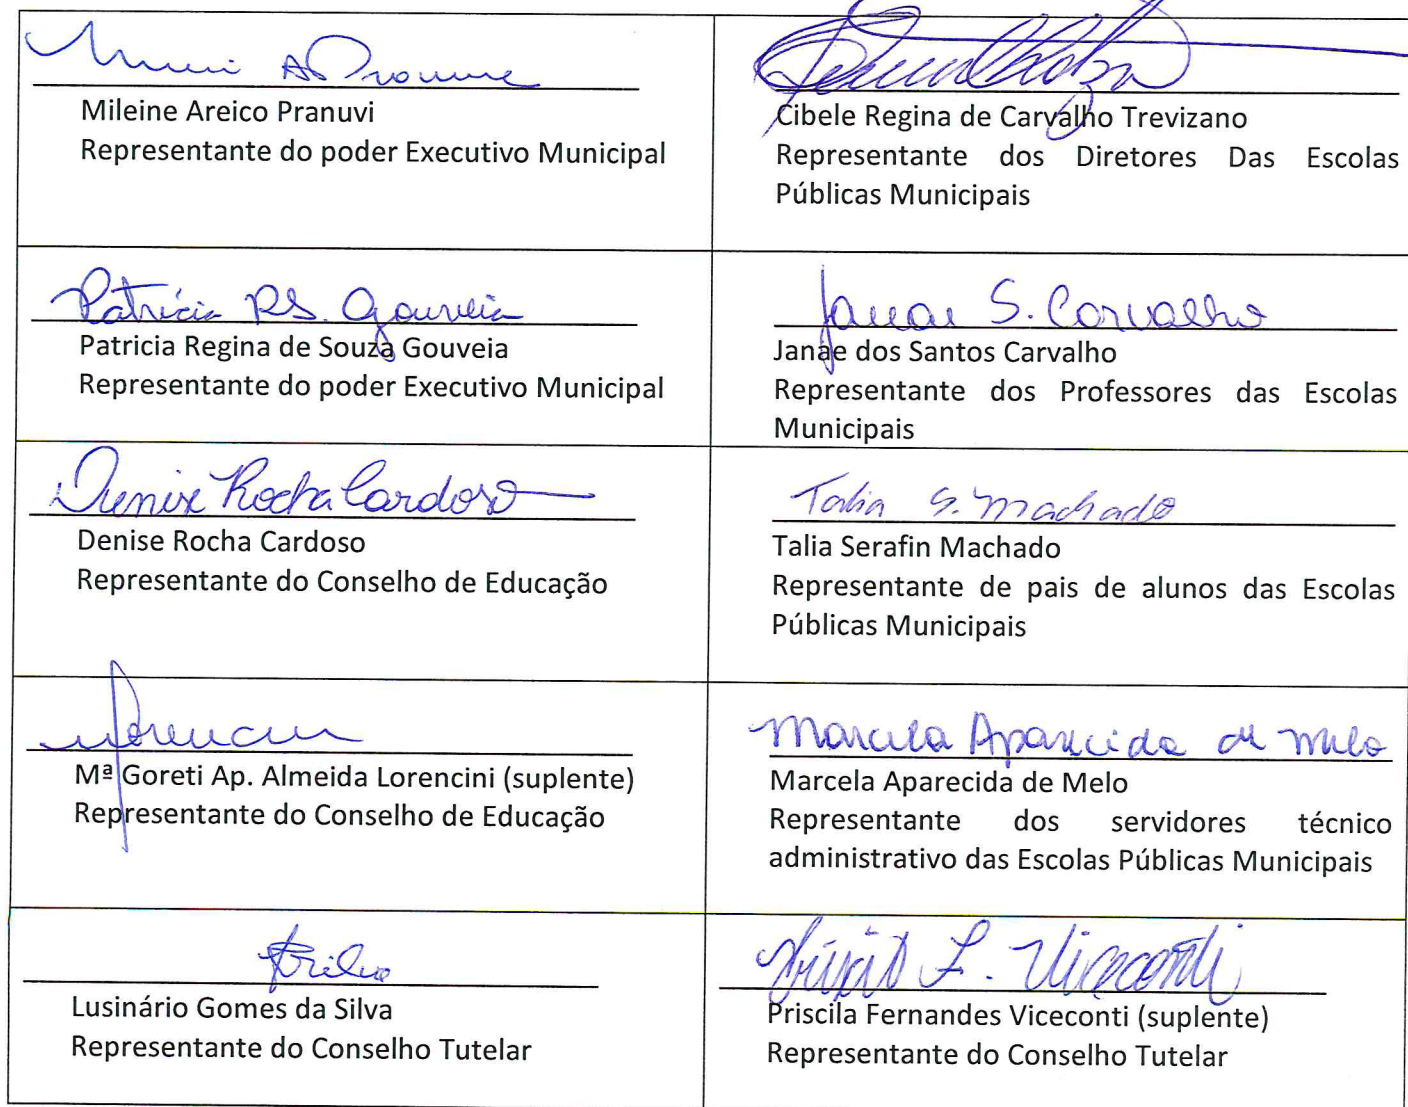 Mileine Areico Pranuvi
Representante do poder Executivo Municipal
Cibele Regina de Carvalho Trevizano
Representante dos Diretores Das Escolas
Públicas Municipais
Patrícia RS. Gouveia
Patricia Regina de Souza Gouveia
Representante do poder Executivo Municipal
Janae S. Carvalho
Janae dos Santos Carvalho
Representante dos Professores das Escolas
Municipais
Denise Rocha Cardoso
Denise Rocha Cardoso
Representante do Conselho de Educação
Talia S. Machado
Talia Serafin Machado
Representante de pais de alunos das Escolas
Públicas Municipais
Mª Goreti Ap. Almeida Lorencini (suplente)
Representante do Conselho de Educação
Marcela Aparecida de Melo
Marcela Aparecida de Melo
Representante dos servidores técnico
administrativo das Escolas Públicas Municipais
Lusinário Gomes da Silva
Representante do Conselho Tutelar
F. Viceconti
Priscila Fernandes Viceconti (suplente)
Representante do Conselho Tutelar